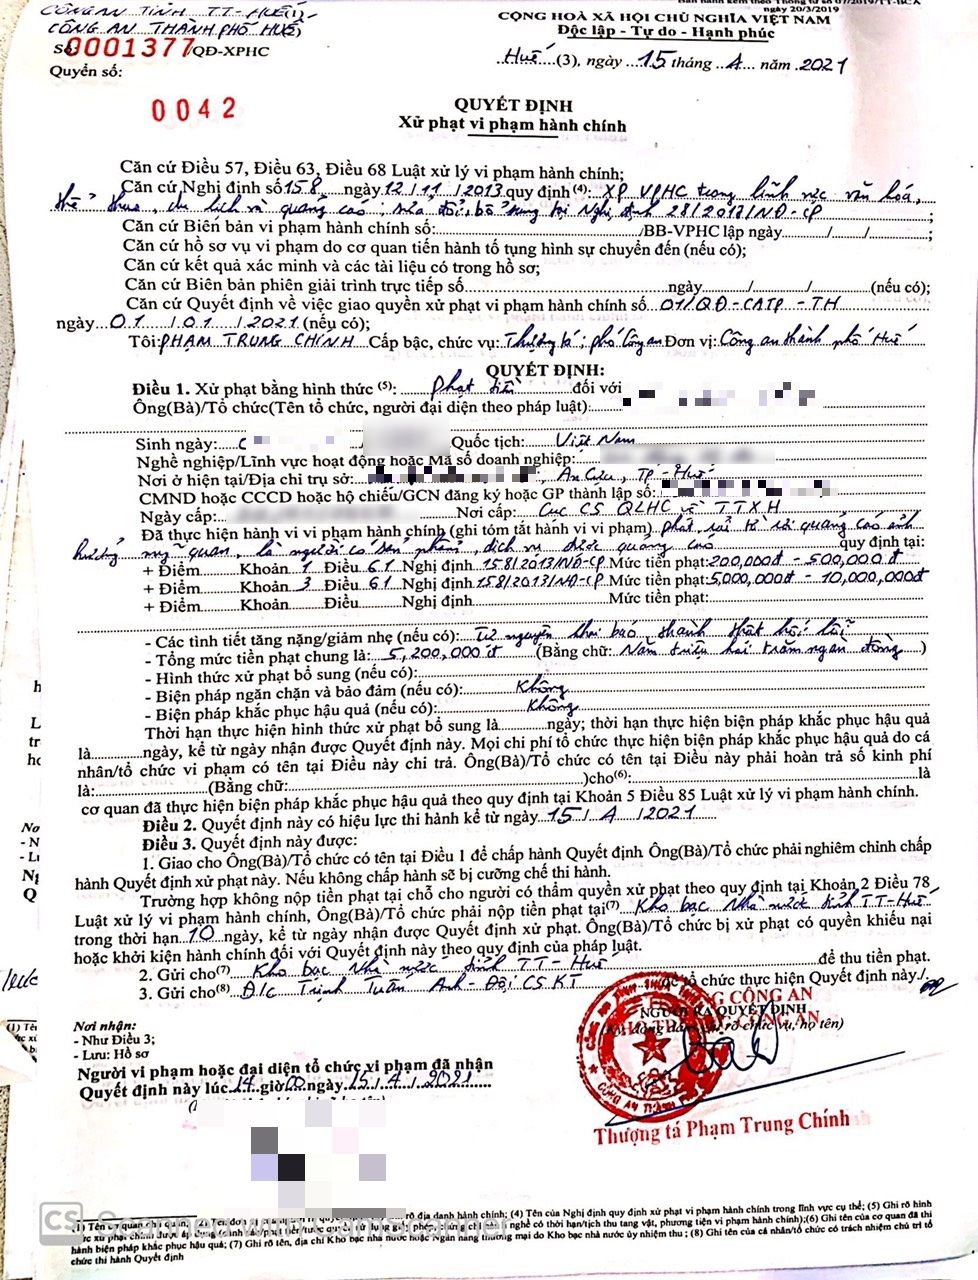 CÔNG AN TỈNH TT-HUẾ(1)
CÔNG AN THÀNH PHỐ HUẾ
Số 0001377/QĐ-XPHC
Quyển số:
0042
Ban hành kèm theo Thông tư số 07/2019/TT-BCA
ngày 20/3/2019
CỘNG HOÀ XÃ HỘI CHỦ NGHĨA VIỆT NAM
Độc lập - Tự do - Hạnh phúc
Huế (3), ngày 15 tháng 4 năm 2021
QUYẾT ĐỊNH
Xử phạt vi phạm hành chính
Căn cứ Điều 57, Điều 63, Điều 68 Luật xử lý vi phạm hành chính;
Căn cứ Nghị định số 158 ngày 12/11/2013 quy định (4): XP VPHC trong lĩnh vực văn hoá,
thể thao, du lịch và quảng cáo; sửa đổi, bổ sung tại Nghị định 28/2017/NĐ-CP;
Căn cứ Biên bản vi phạm hành chính số:............/BB-VPHC lập ngày....../....../......;
Căn cứ hồ sơ vụ vi phạm do cơ quan tiến hành tố tụng hình sự chuyển đến (nếu có);
Căn cứ kết quả xác minh và các tài liệu có trong hồ sơ;
Căn cứ Biên bản phiên giải trình trực tiếp số............ngày....../....../......(nếu có);
Căn cứ Quyết định về việc giao quyền xử phạt vi phạm hành chính số 01/QĐ-CATP-TH
ngày 01/01/2021 (nếu có);
Tôi: PHẠM TRUNG CHÍNH Cấp bậc, chức vụ: Thượng tá; phó Công an Đơn vị: Công an thành phố Huế
QUYẾT ĐỊNH:
Điều 1. Xử phạt bằng hình thức (5): phạt tiền đối với
Ông(Bà)/Tổ chức(Tên tổ chức, người đại diện theo pháp luật):
Sinh ngày: Quốc tịch: Việt Nam
Nghề nghiệp/Lĩnh vực hoạt động hoặc Mã số doanh nghiệp:
Nơi ở hiện tại/Địa chỉ trụ sở: An Cựu, TP-Huế
CMND hoặc CCCD hoặc hộ chiếu/GCN đăng ký hoặc GP thành lập số:
Ngày cấp: Nơi cấp: Cục CS QLHC về TTXH
Đã thực hiện hành vi vi phạm hành chính (ghi tóm tắt hành vi vi phạm) phát, rải tờ rơi quảng cáo ảnh
hưởng mỹ quan, là người có sản phẩm, dịch vụ được quảng cáo quy định tại:
+ Điểm......Khoản 1 Điều 61 Nghị định 158/2013/NĐ-CP Mức tiền phạt: 200,000đ - 500,000đ
+ Điểm......Khoản 3 Điều 61 Nghị định 158/2013/NĐ-CP Mức tiền phạt: 5,000,000đ - 10,000,000đ
+ Điểm......Khoản......Điều......Nghị định......Mức tiền phạt:......
- Các tình tiết tăng nặng/giảm nhẹ (nếu có): Tự nguyện khai báo thành thật hối lỗi
- Tổng mức tiền phạt chung là: 5,200,000đ (Bằng chữ: Năm triệu hai trăm ngàn đồng)
- Hình thức xử phạt bổ sung (nếu có):
- Biện pháp ngăn chặn và bảo đảm (nếu có): Không
- Biện pháp khắc phục hậu quả (nếu có): Không
Thời hạn thực hiện hình thức xử phạt bổ sung là......ngày; thời hạn thực hiện biện pháp khắc phục hậu quả
là......ngày, kể từ ngày nhận được Quyết định này. Mọi chi phí tổ chức thực hiện biện pháp khắc phục hậu quả do cá
nhân/tổ chức vi phạm có tên tại Điều này chi trả. Ông(Bà)/Tổ chức có tên tại Điều này phải hoàn trả số kinh phí
là:............(Bằng chữ:............)cho(6):............là
cơ quan đã thực hiện biện pháp khắc phục hậu quả theo quy định tại Khoản 5 Điều 85 Luật xử lý vi phạm hành chính.
Điều 2. Quyết định này có hiệu lực thi hành kể từ ngày 15/4/2021
Điều 3. Quyết định này được:
1. Giao cho Ông(Bà)/Tổ chức có tên tại Điều 1 để chấp hành Quyết định Ông(Bà)/Tổ chức phải nghiêm chỉnh chấp
hành Quyết định xử phạt này. Nếu không chấp hành sẽ bị cưỡng chế thi hành.
Trường hợp không nộp tiền phạt tại chỗ cho người có thẩm quyền xử phạt theo quy định tại Khoản 2 Điều 78
Luật xử lý vi phạm hành chính, Ông(Bà)/Tổ chức phải nộp tiền phạt tại(7) Kho bạc Nhà nước tỉnh TT-Huế
trong thời hạn 10 ngày, kể từ ngày nhận được Quyết định xử phạt. Ông(Bà)/Tổ chức bị xử phạt có quyền khiếu nại
hoặc khởi kiện hành chính đối với Quyết định này theo quy định của pháp luật.
2. Gửi cho(7) Kho bạc Nhà nước tỉnh TT-Huế để thu tiền phạt.
3. Gửi cho(8) Đ/c Trịnh Tuấn Anh - Đội CSKT để tổ chức thực hiện Quyết định này./.
Nơi nhận:
- Như Điều 3;
- Lưu: Hồ sơ
NGƯỜI RA QUYẾT ĐỊNH
Người vi phạm hoặc đại diện tổ chức vi phạm đã nhận
Quyết định này lúc 14 giờ 00 ngày 15/4/2021
Thượng tá Phạm Trung Chính
CS Scanned with CamScanner